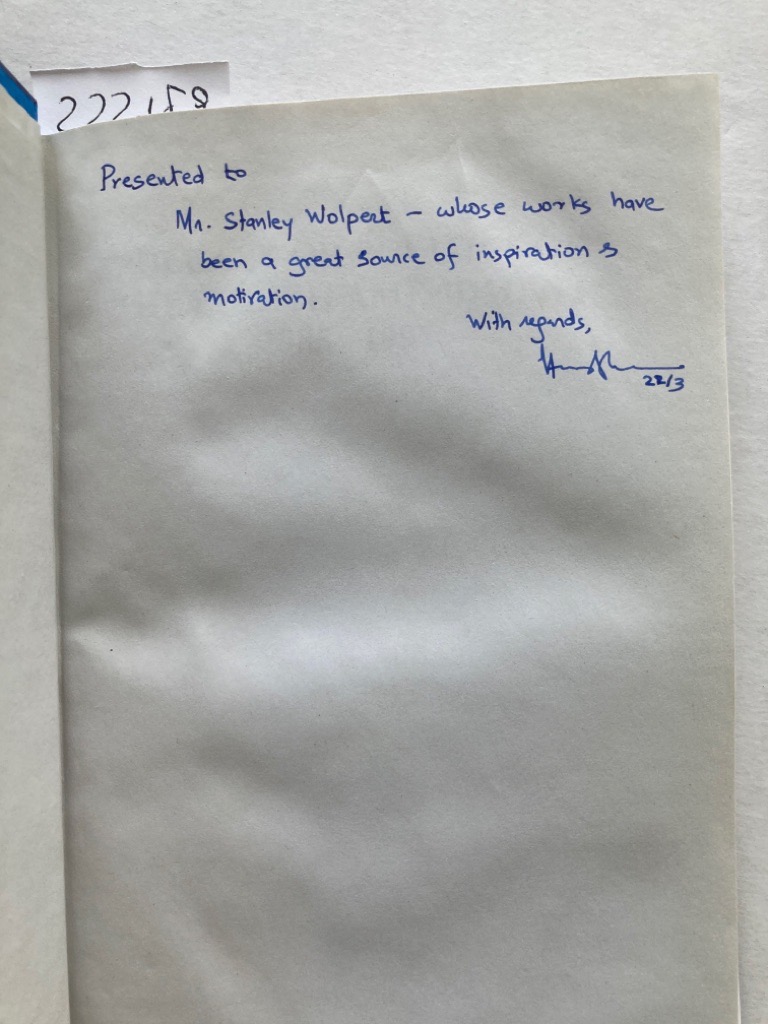 Presented to
Mr. Stanley Wolpert – whose works have
been a great source of inspiration &
motivation.
With regards,
22/3